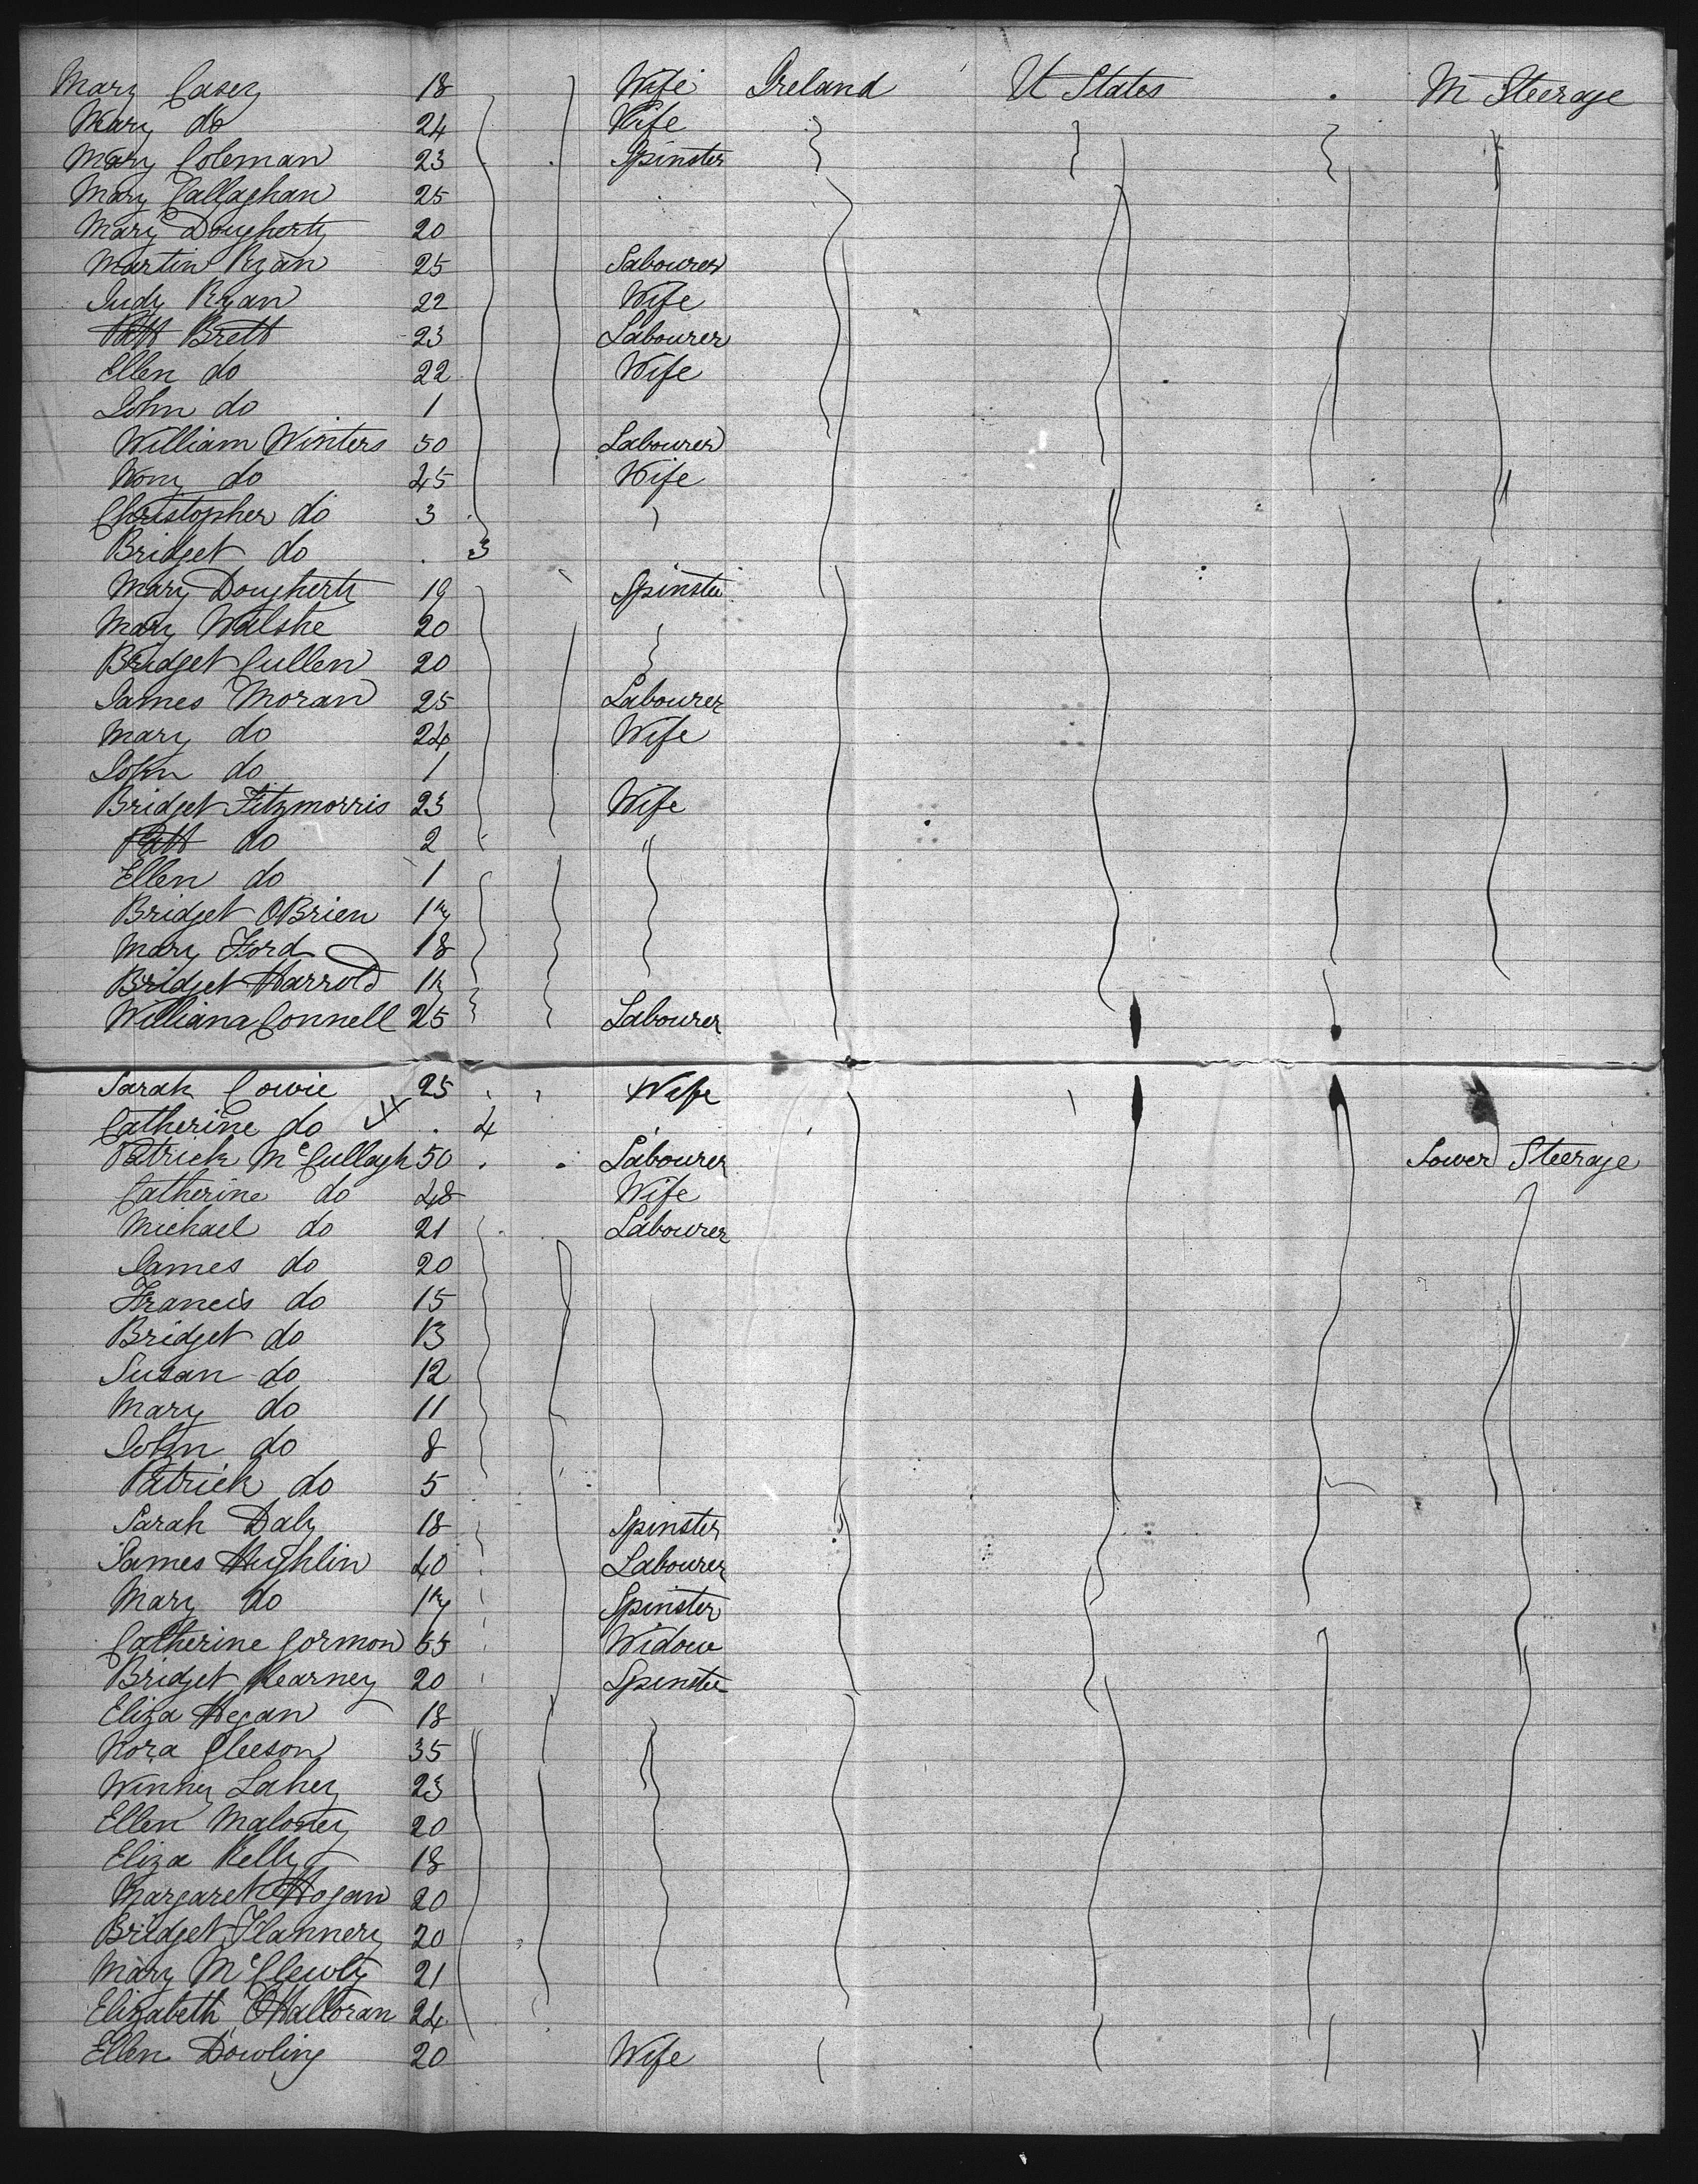 Mary Casey 18 Wife Ireland U States M Steerage
Mary do 24 Wife
Mary Coleman 23 Spinster
Mary Callaghan 25
Mary Dougherty 20
Martin Ryan 25 Labourer
Judy Ryan 22 Wife
Patt Brett 23 Labourer
Ellen do 22 Wife
John do 1
William Winters 50 Labourer
do 45 Wife
Christopher do 3
Bridget do . 3
Mary Dougherty 19 Spinster
Mary Walshe 20
Bridget Cullen 20
James Moran 25 Labourer
Mary do 24 Wife
John do 1
Bridget Fitzmorris 23 Wife
Patt do 2
Ellen do 1
Bridget OBrien 17
Mary Ford 18
Bridget Harrold 17
William Connell 25 Labourer
Sarah Cowie 25 Wife
Catherine do . 4
Patrick McCullagh 50 Labourer Lower Steerage
Catherine do 48 Wife
Michael do 21 Labourer
James do 20
Francis do 15
Bridget do 13
Susan do 12
Mary do 11
John do 8
Patrick do 5
Sarah Daly 18 Spinster
James Hughlin 40 Labourer
Mary do 17 Spinster
Catherine Gormon 55 Widow
Bridget Kearney 20 Spinster
Eliza Hegan 18
Nora Gleeson 35
Winny Lahey 23
Ellen Maloney 20
Eliza Kelly 18
Margaret Hogan 20
Bridget Flannery 20
Mary 21
Elizabeth OHalloran 24
Ellen Dowling 20 Wife